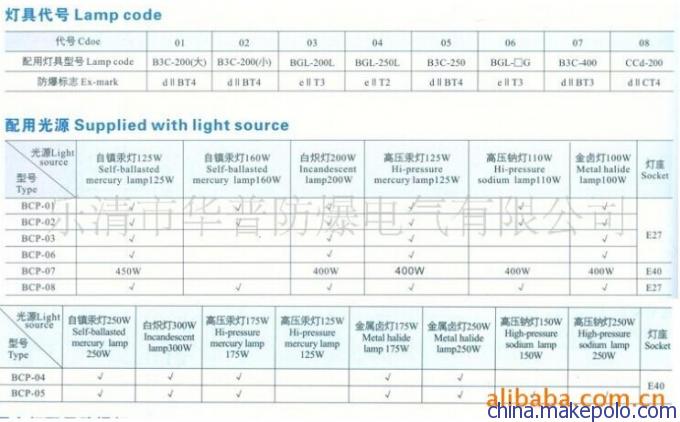 灯具代号 Lamp code
代号 Cdoe 01 02 03 04 05 06 07 08
配用灯具型号 Lamp code B3C-200(大) B3C-200(小) BGL-200L BGL-250L B3C-250 BGL-□G B3C-400 CCd-200
防爆标志 Ex-mark dⅡBT4 dⅡBT4 eⅡT3 eⅡT2 dⅡBT4 eⅡT3 dⅡBT3 dⅡCT4
配用光源 Supplied with light source
光源Light source 自镇汞灯125W 自镇汞灯160W 白炽灯200W 高压汞灯125W 高压钠灯110W 金卤灯100W 灯座
型号 Type Self-ballasted mercury lamp125W Self-ballasted mercury lamp160W Incandescent lamp200W Hi-pressure mercury lamp125W Hi-pressure sodium lamp110W Metal halide lamp100W Socket
BCP-01 √ √ √ √ √ √
BCP-02 √ √ √ √ √ √
BCP-03 √ √ √ √ E27
BCP-06 √ √ √
BCP-07 450W 400W 400W 400W 400W E40
BCP-08 √ √ √ √ √ E27
乐清市华普防爆电气有限公司
光源Light source 自镇汞灯250W 白炽灯300W 高压汞灯175W 高压汞灯125W 金属卤灯175W 金属卤灯250W 高压钠灯150W 高压钠灯250W 灯座
型号 Type Self-ballasted mercury lamp 250W Incandescent lamp300W Hi-pressure mercury lamp 175W Hi-pressure mercury lamp 125W Metal halide lamp 175W Metal halide lamp250W High-pressure sodium lamp 150W High-pressure sodium lamp 250W Socket
BCP-04 √ √ √ √ √ E40
BCP-05 √ √ √ √ √ √ √
alibaba.com.cn
china.makepolo.com